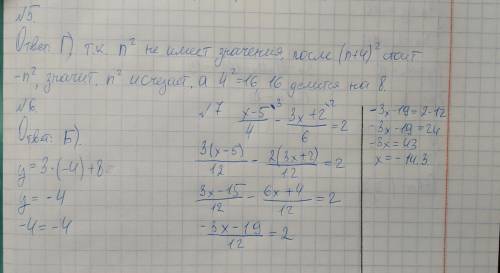 №5
Ответ: Г), т.к. n² не имеет значения, после (n+4)² стоит
-n², значит, n² исчезает, а 4²=16, 16 делится на 8.
№6.
Ответ: Б).
y=3·(-4)+8
y=-4
-4=-4
№7 (x-5)/4 - (3x+2)/6 = 2
3(x-5)/12 - 2(3x+2)/12 = 2
(3x-15)/12 - (6x+4)/12 = 2
(-3x-19)/12 = 2
-3x-19=2·12
-3x-19=24
-3x=43
x=-14.3